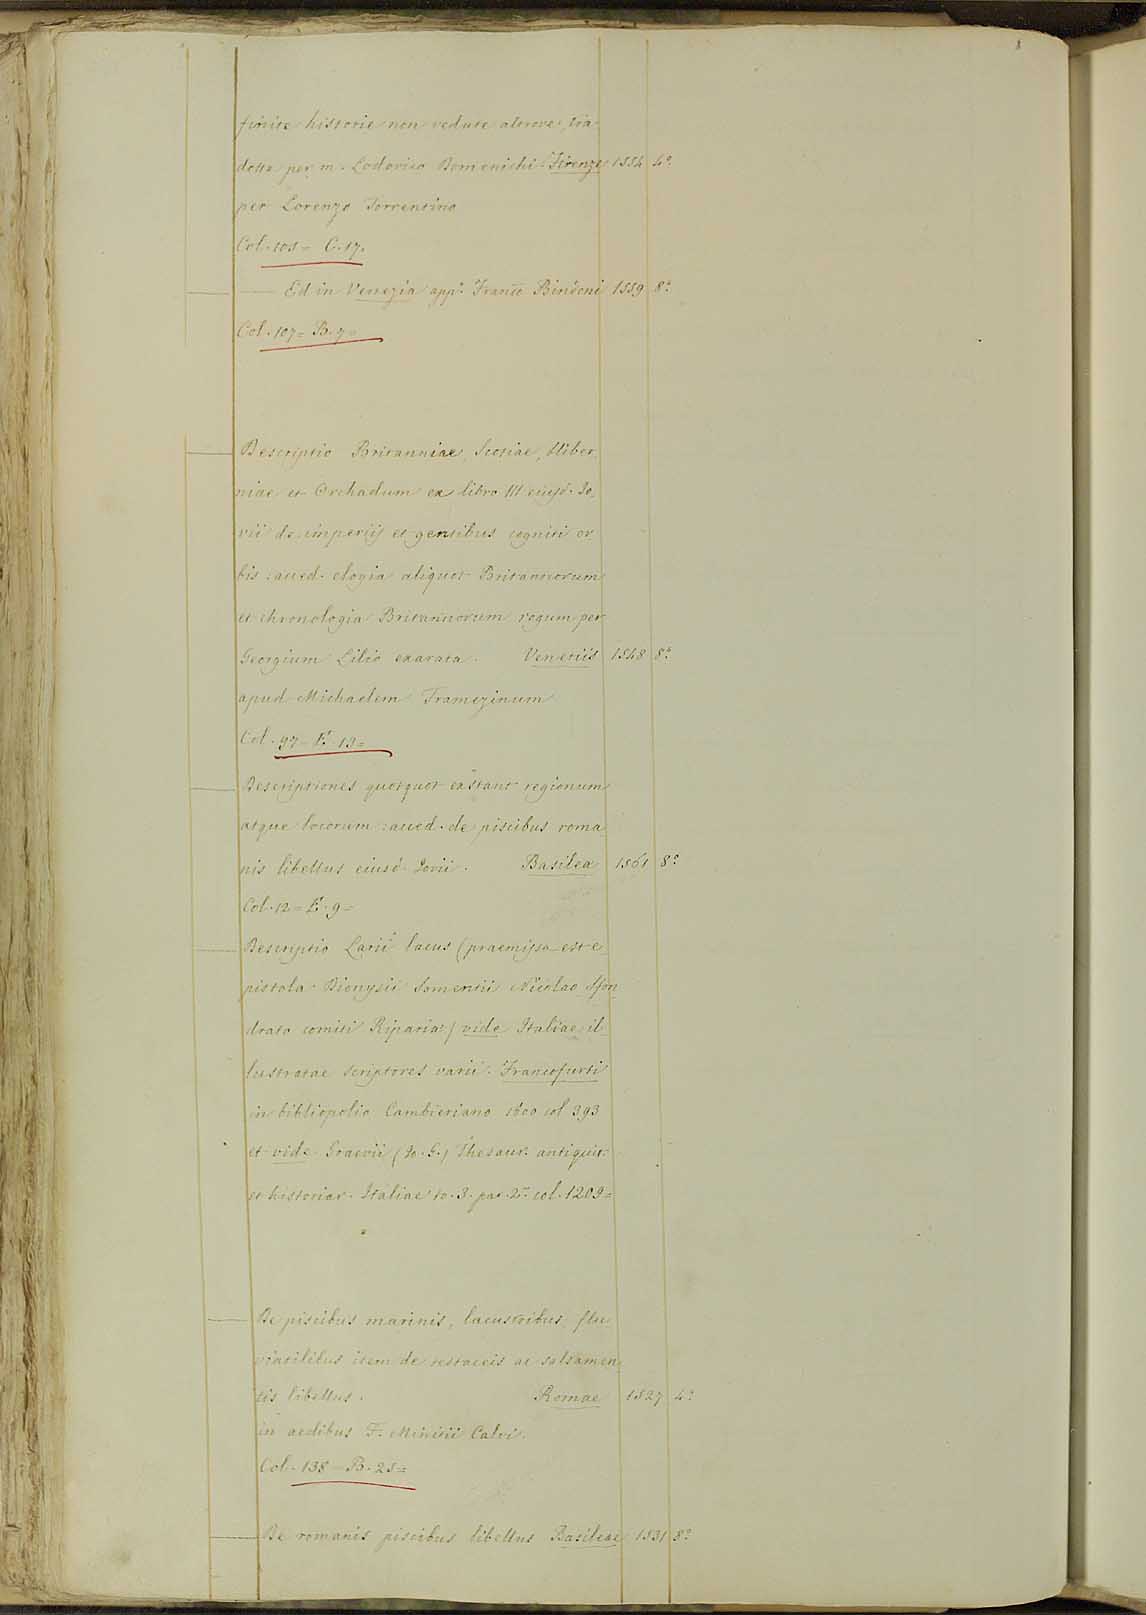 finite historie non vedute altrove, tra-
dotte per m. Lodovico Domenichi. Firenze 1554 4.°
per Lorenzo Torrentino
Col. 101 = C. 17.
— Ed in Venezia app.° Franc̄o Bindoni 1559 8.°
Col. 107 = B. 7 =
Descriptio Britanniae, Scotiae, Hiber-
niae et Orchadum ex libro III eiusd. Jo-
vii de imperiis et gentibus cogniti or-
bis: acced. elogia aliquot Britannorum
et chronologia Britannorum regum per
Georgium Lilio exarata. Venetiis 1548 8.°
apud Michaelem Tramezinum
Col. 97 = E. 13 =
Descriptiones quotquot extant regionum
atque locorum: acced. de piscibus roma-
nis libellus eiusd. Jovii. Basileæ 1561 8.°
Col. 12 = E. 9 =
Descriptio Larii lacus (praemissa est e-
pistola Dionysii Somentii Nicolao Sfon-
drato comiti Ripariae) vide Italiae il-
lustratae scriptores varii. Francofurti
in bibliopolio Cambieriano 1600 col 393
et vide Graevii (Jo. G.) Thesaur. antiquit.
et historiar. Italiae to. 3. par. 2.ª col. 1209 =
De piscibus marinis, lacustribus, flu-
viatilibus item de testaceis ac salsamen-
tis libellus. Romae 1527 4.°
in aedibus F. Minitii Calvi.
Col. 138 = B. 25 =
De romanis piscibus libellus Basileae 1531 8.°